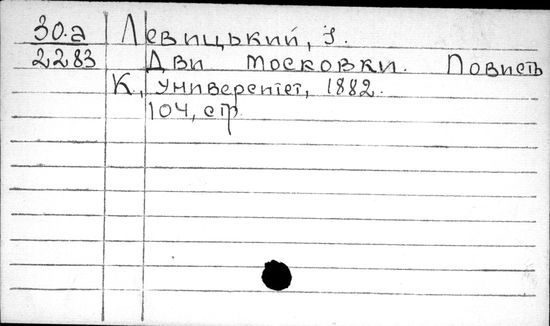 30.а Левицький, І.
2283 Дви московки. Повисть
К, Университет, 1882.
104, стр